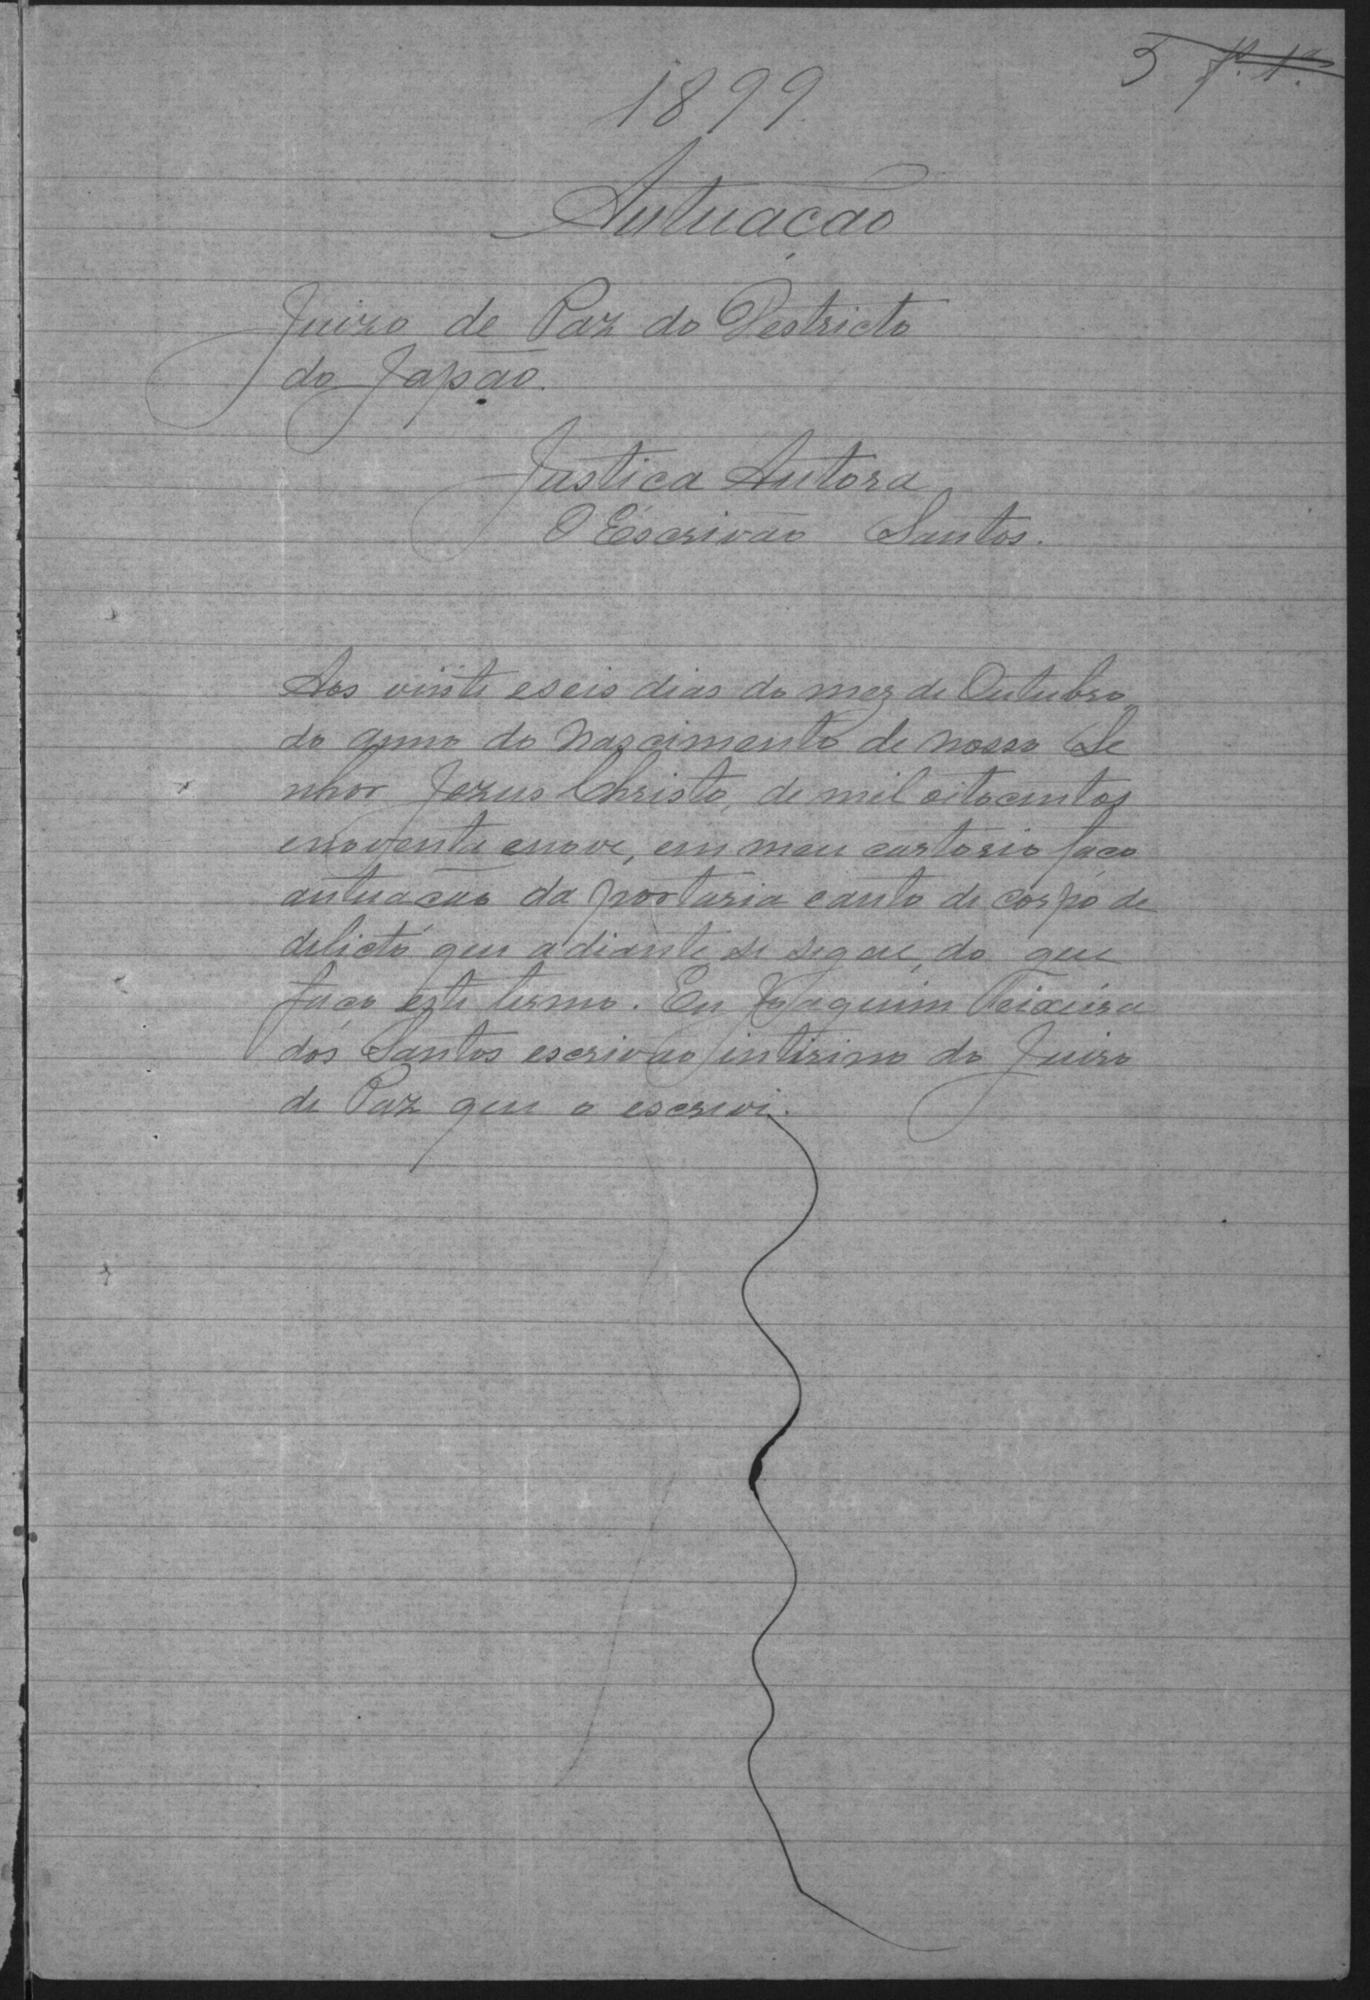 5 f. 1ª
1899
Autuação
Juizo de Paz do Destricto
do Japão.
Justiça Autora
O Escrivão Santos.
Aos vinte e seis dias do mez de Outubro
do anno do Nascimento de nosso Se
nhor Jezus Christo, de mil oitocentos
enoventa enove, em meu cartorio faço
autuação da portaria eauto de corpo de
delicto que adiante se segue, do que
faço este termo. Eu Joaquim Teixeira
dos Santos escrivão intirino do Juizo
de Paz que o escrevi.